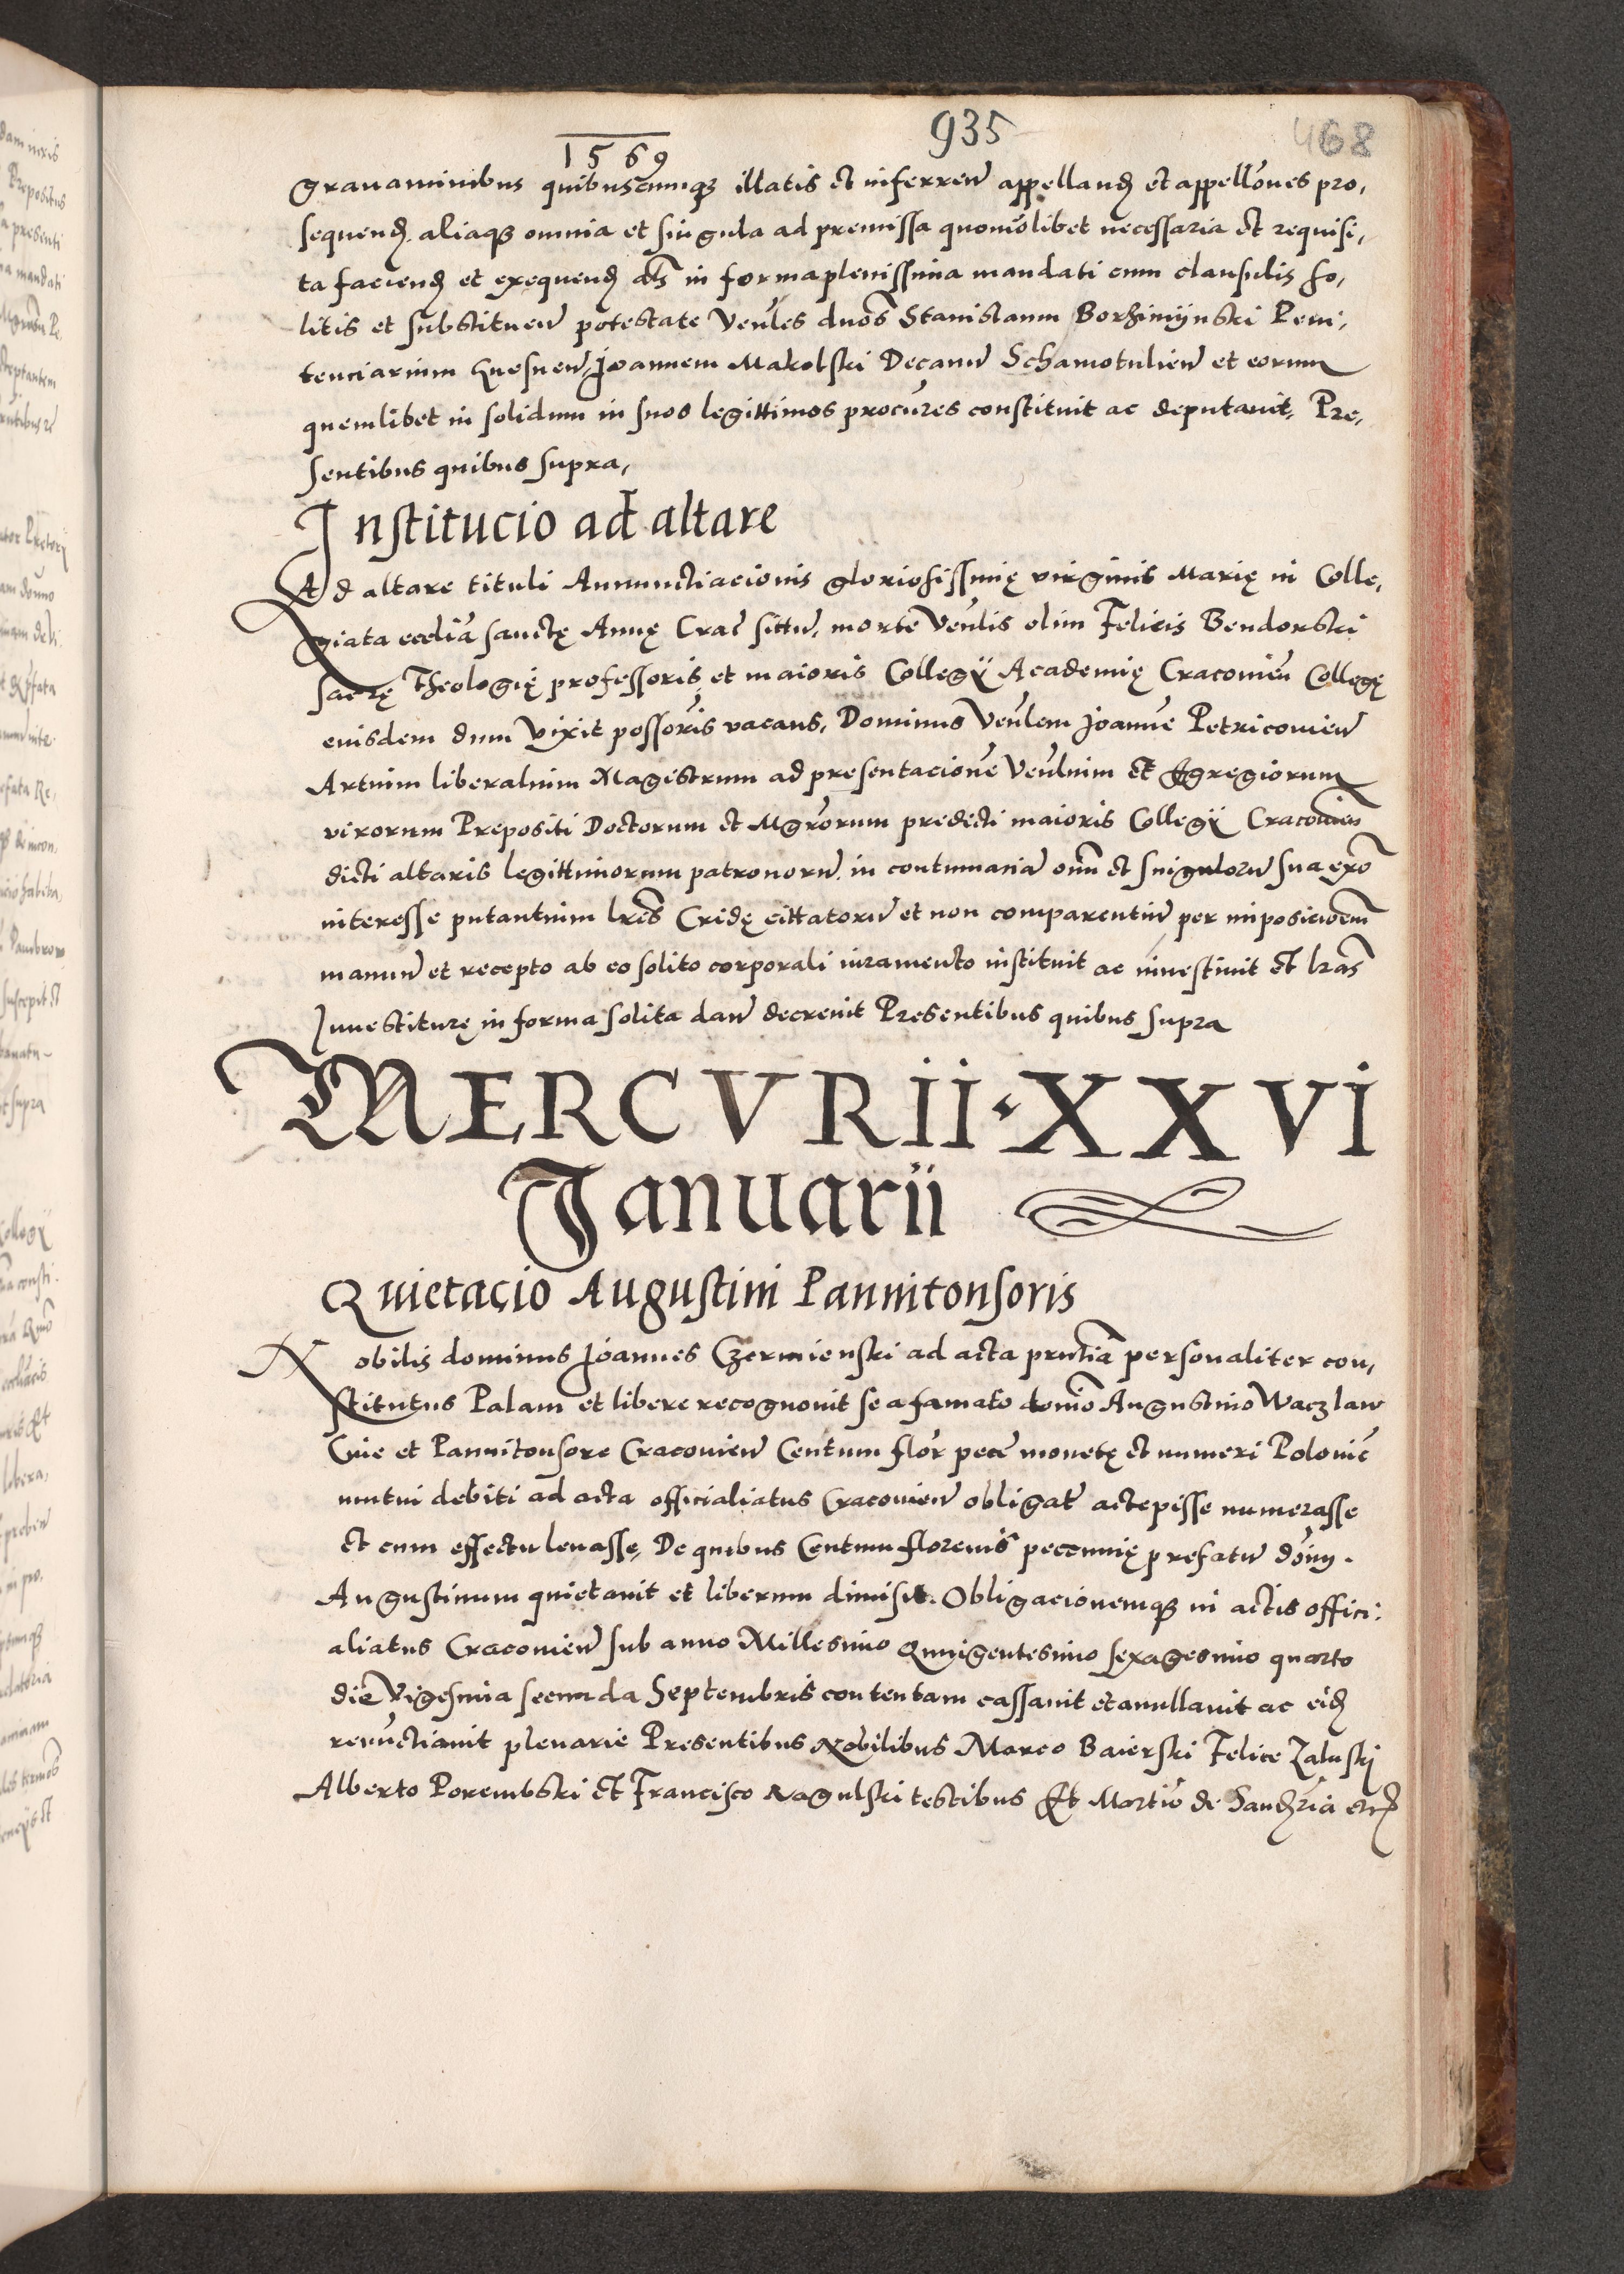 1569
935
468
grauaminibus quibuscumqꝫ illatis et inferren̄ appellanđ et appellōnes pro,
sequenđ. aliaqꝫ omnia et singula ad premissa quomōlibet necessaria et requisi,
ta facienđ et exequenđ ałs in forma plenissima mandati cum clausulis so,
litis et substituen̄ potestate Ven̄les dnōs Stanislaum Borzimijnski Peni,
tenciarium Gnesnen̄, Joannem Makolski Decanū Schamotulien̄ et eorum
quemlibet in solidum in suos legittimos procūres constituit ac deputauit, Pre,
sentibus quibus supra,
Institucio ad altare
Ad altare tituli Annunctiacionis gloriosissimę virginis Marię in Colle,
giata ecclīa sanctę Annę Crac̄ sittū, morte Ven̄lis olim Felicis Bendorski
sacrę Theologię professoris, et maioris Collegÿ Academię Cracouien̄ Collegę
eiusdem dum vixit possōris vacans, Dominus Ven̄lem Joannē Petricouien̄
Artium liberalium Magistrum ad presentacionē Ven̄lium et Egregiorum
virorum Prepositi Doctorum et Mgrōrum predicti maioris Collegÿ Cracouien̄
dicti altaris legittimorum patronorū, in contumaciā om̄ et singulorū sua exo̅
interesse putantium lrīs Cridę cittatorū et non comparentiū per imposicioēm
manuū et recepto ab eo solito corporali iuramento instituit ac inuestiuit et lrās
Inuestiturę in forma solita dan̄ decreuit Presentibus quibus supra
MERCVRII · XXVI
Januarii
Quietacio Augustini Pannitonsoris
Nobilis dominus Joannes Czermienski ad acta pn̄tia personaliter con,
stitutus Palam et libere recognouit se a famato domīo Augustino Waczlaw
Ciue et Pannitonsore Cracouien̄ Centum flor̄ pecē monetę et numeri Polonic̄
mutui debiti ad acta officialiatus Cracouien̄ obligat̄ accepisse numerasse
et cum effectu leuasse, De quibus Centum florenis peccunię prefatū dōm̄.
Augustinum quietauit et liberum dimisit. Obligacionemqꝫ in actis offici:
aliatus Cracouien̄ sub anno Millesimo Quingentesimo sexagesimo quarto
die Vigesima secunda Septembris contentam cassauit et anullauit ac eiđ
renūctiauit plenarie Presentibus Nobilibus Marco Baierski Felice Zaluski
Alberto Porembski et Francisco Ragulski testibus Et Martīo de